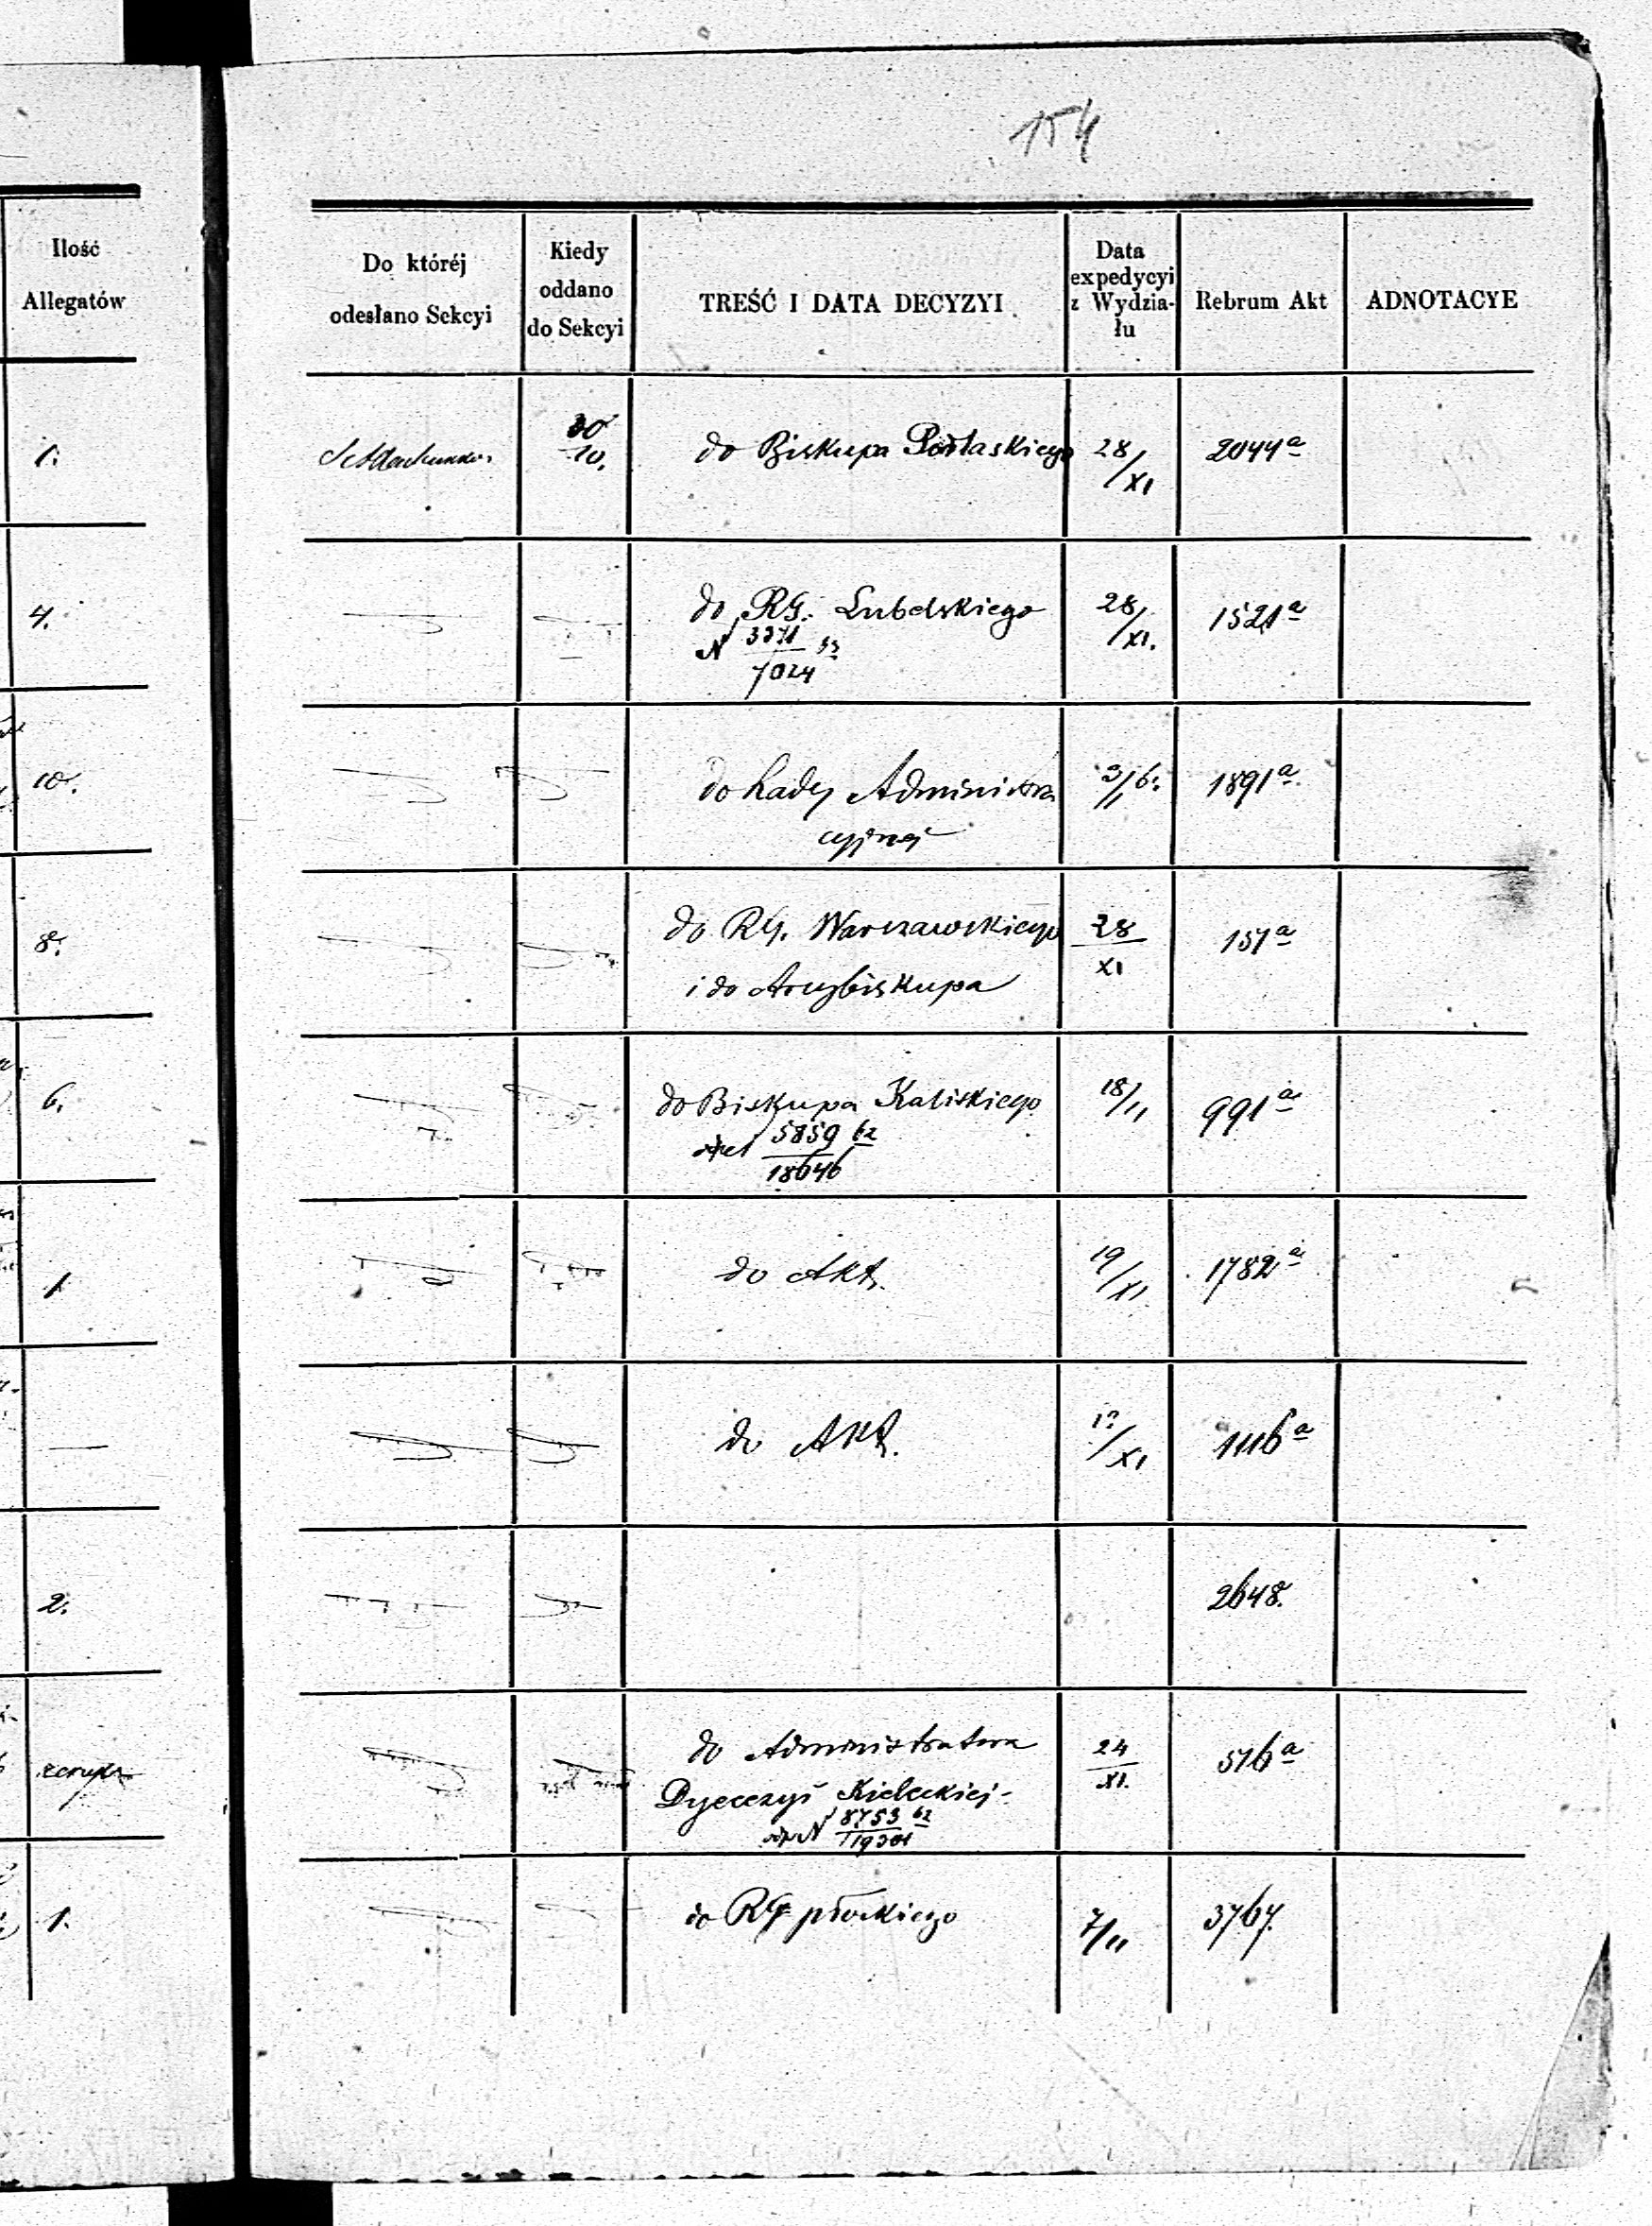 154
Ilość
Allegatów
Do któréj
odesłano Sekcyi
Kiedy
oddano
do Sekcyi
TREŚĆ I DATA DECYZYI
Data
expedycyi
z Wydzia-
łu
Rebrum Akt
ADNOTACYE
1.
30
10.
do Biskupa Podlaskiego
28/XI
2044a
4.
do RG. Lubelskiego
N 3371
7024
28/XI.
1521a
10.
do Rady Administra
cyjnej
1891a
8.
do RG. Warszawskiego
i do Arcybiskupa
28
XI
151a
6.
do Biskupa Kaliskiego
5859 62
18646
18/11
991a
1
do Akt.
19/XI
1782a
—
do Akt.
/XI
1116a
2.
2648.
do Administratora
Dyecezyi Kieleckiej
N 8753 62
19301
24
XI.
516a
1.
do RG płockiego
7/11
3767.